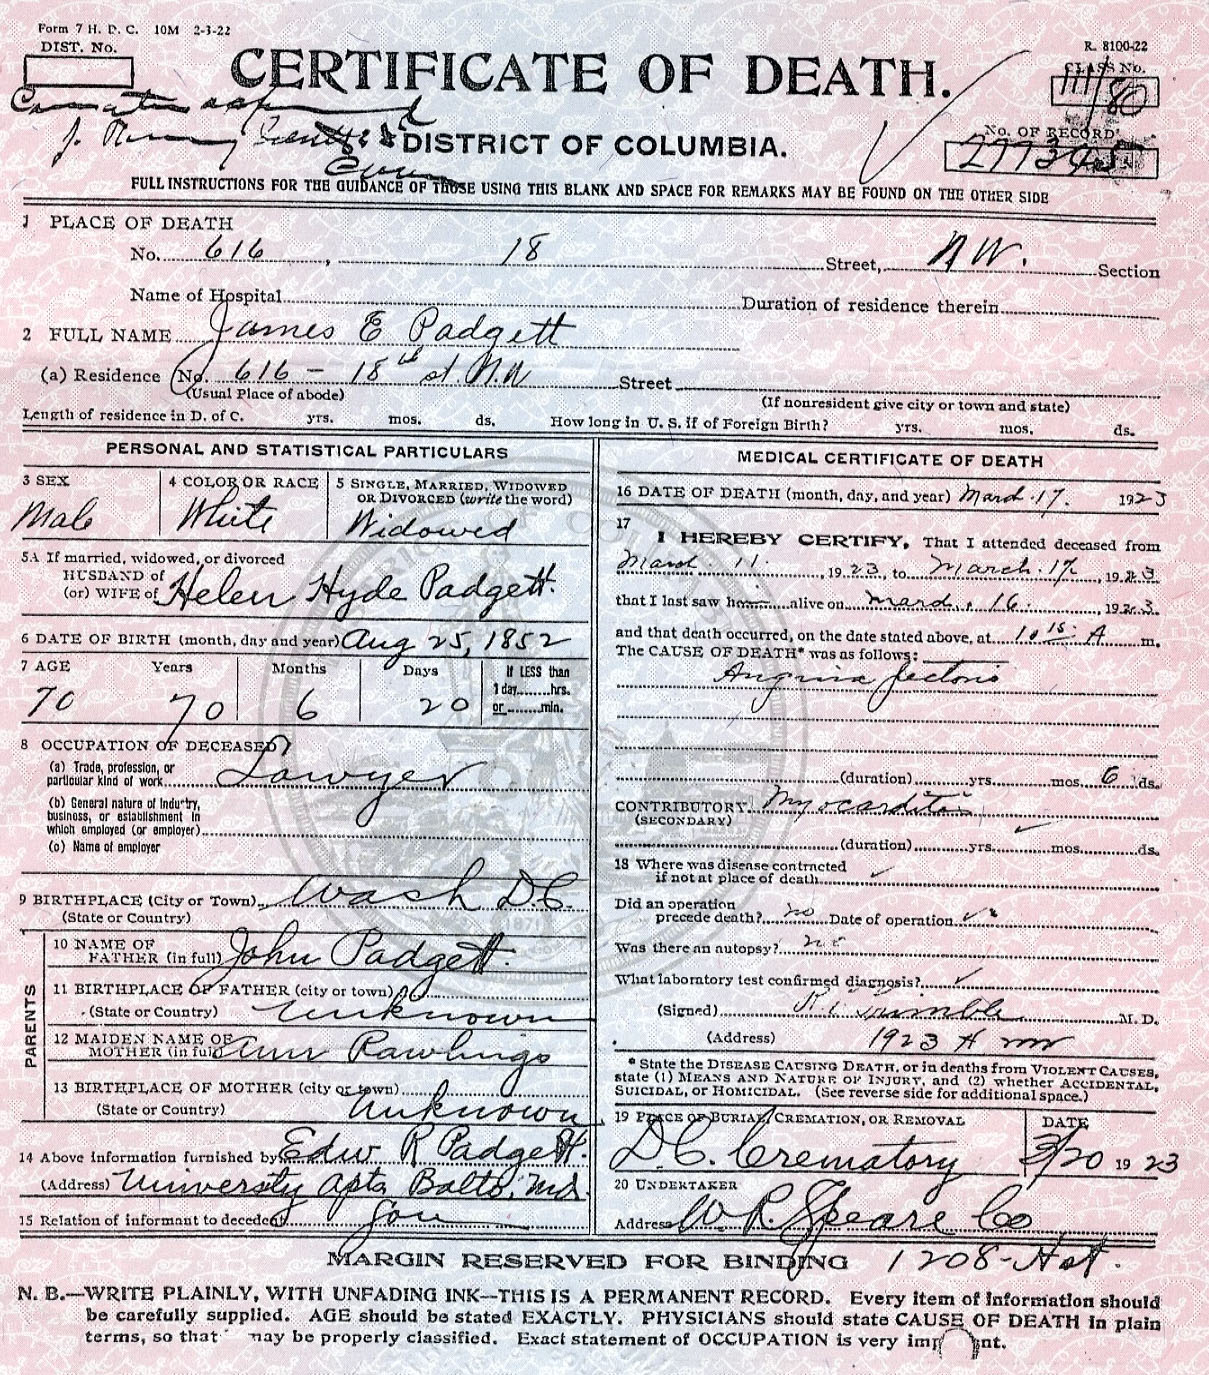 Form 7 H. D. C. 10M 2-3-22
R. 8100-22
DIST. No.
CLASS No.
111/80
CERTIFICATE OF DEATH.
DISTRICT OF COLUMBIA.
No. OF RECORD
277345
FULL INSTRUCTIONS FOR THE GUIDANCE OF THOSE USING THIS BLANK AND SPACE FOR REMARKS MAY BE FOUND ON THE OTHER SIDE
1 PLACE OF DEATH
No. 616, 18 Street, N.W. Section
Name of Hospital Duration of residence therein
2 FULL NAME James E Padgett
(a) Residence No. 616 - 18th st. N.W Street
(Usual Place of abode) (If nonresident give city or town and state)
Length of residence in D. of C. yrs. mos. ds. How long in U. S. if of Foreign Birth? yrs. mos. ds.
PERSONAL AND STATISTICAL PARTICULARS
3 SEX 4 COLOR OR RACE 5 SINGLE, MARRIED, WIDOWED
OR DIVORCED (write the word)
Male White Widowed
5A If married, widowed, or divorced
HUSBAND of
(or) WIFE of Helen Hyde Padgett.
6 DATE OF BIRTH (month, day and year) Aug 25, 1852
7 AGE Years Months Days If LESS than
1 day, hrs.
or min.
70 70 6 20
8 OCCUPATION OF DECEASED
(a) Trade, profession, or
particular kind of work Lawyer
(b) General nature of Industry,
business, or establishment in
which employed (or employer)
(c) Name of employer
9 BIRTHPLACE (City or Town) Wash D.C.
(State or Country)
PARENTS
10 NAME OF
FATHER (in full) John Padgett.
11 BIRTHPLACE OF FATHER (city or town)
(State or Country) Unknown
12 MAIDEN NAME OF
MOTHER (in full) Ann Rawlings
13 BIRTHPLACE OF MOTHER (city or town)
(State or Country) Unknown
14 Above information furnished by Edw R Padgett.
(Address) University Apts Balto. Md.
15 Relation of informant to decedent Son
MEDICAL CERTIFICATE OF DEATH
16 DATE OF DEATH (month, day, and year) March 17. 1923
17
I HEREBY CERTIFY, That I attended deceased from
March 11. , 1923, to March 17, 1923
that I last saw h alive on March 16. 1923
and that death occurred, on the date stated above, at 1015 A m.
The CAUSE OF DEATH* was as follows:
Angina Pectoris
(duration) yrs. mos. 6 ds.
CONTRIBUTORY Myocarditis
(SECONDARY)
(duration) yrs. mos. ds.
18 Where was disease contracted
if not at place of death
Did an operation
precede death? no Date of operation
Was there an autopsy? no
What laboratory test confirmed diagnosis?
(Signed) M. D.
(Address) 1923
* State the DISEASE CAUSING DEATH, or in deaths from VIOLENT CAUSES,
state (1) MEANS AND NATURE OF INJURY, and (2) whether ACCIDENTAL,
SUICIDAL, or HOMICIDAL. (See reverse side for additional space.)
19 PLACE OF BURIAL, CREMATION, OR REMOVAL DATE
D.C. Crematory 3/20 1923
20 UNDERTAKER
Address W. R. Speare Co
1208-H st.
MARGIN RESERVED FOR BINDING
N. B.—WRITE PLAINLY, WITH UNFADING INK—THIS IS A PERMANENT RECORD. Every item of information should
be carefully supplied. AGE should be stated EXACTLY. PHYSICIANS should state CAUSE OF DEATH in plain
terms, so that may be properly classified. Exact statement of OCCUPATION is very important.